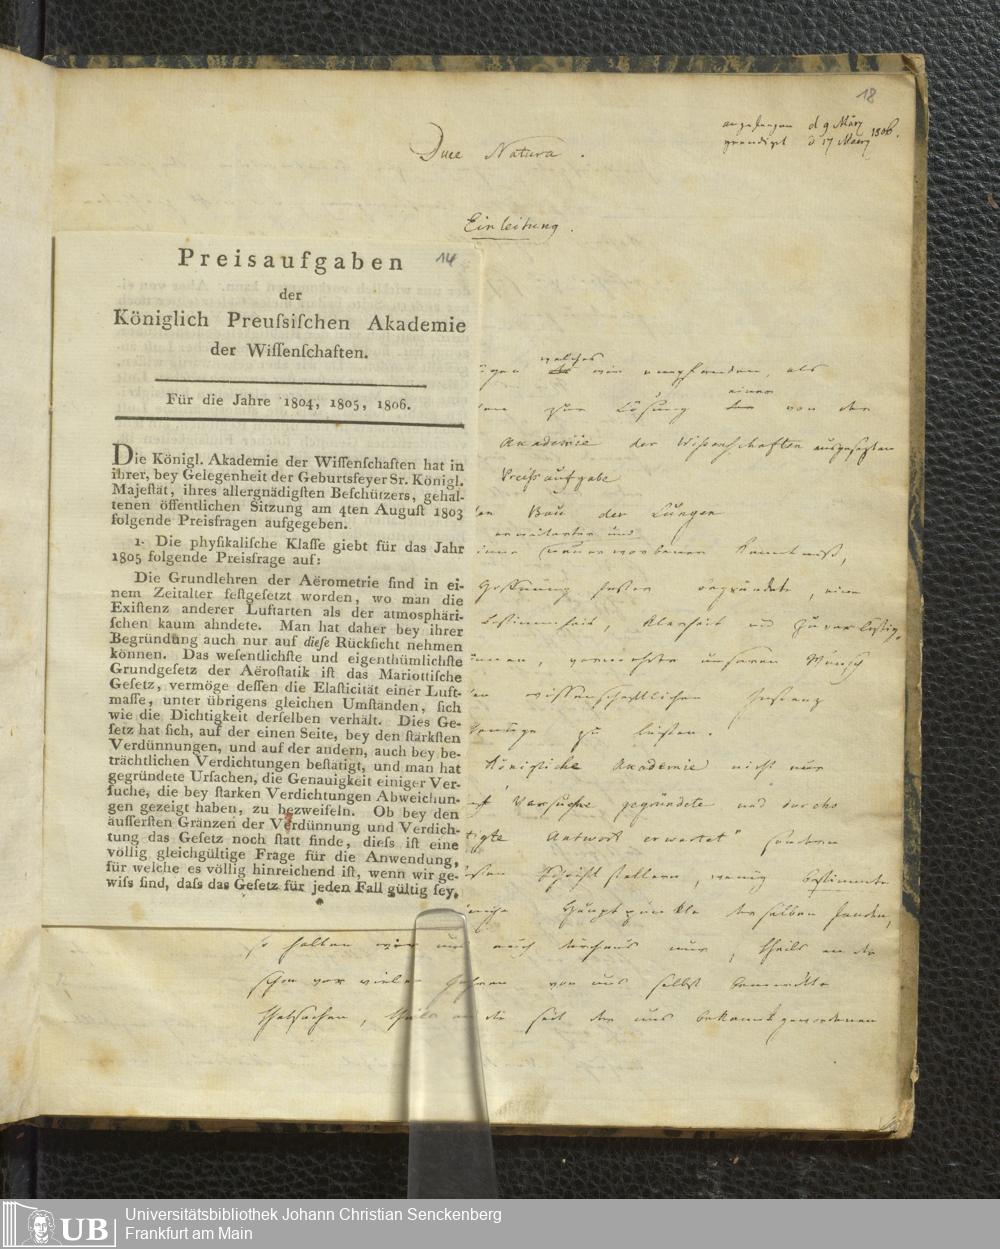 18
angefangen d 9 März
geendigt d 17 März 1806.
Duce Natura.
Einleitung.
Preisaufgaben 14
der
Königlich Preuſsiſchen Akademie
der Wiſſenſchaften.
Für die Jahre 1804, 1805, 1806.
Die Königl. Akademie der Wiſſenſchaften hat in
ihrer, bey Gelegenheit der Geburtsfeyer Sr. Königl.
Majeſtät, ihres allergnädigſten Beſchützers, gehal-
tenen öffentlichen Sitzung am 4ten Auguſt 1803
folgende Preisfragen aufgegeben.
1. Die phyſikaliſche Klaſſe giebt für das Jahr
1805 folgende Preisfrage auf:
Die Grundlehren der Aërometrie ſind in ei-
nem Zeitalter feſtgeſetzt worden, wo man die
Exiſtenz anderer Luftarten als der atmosphäri-
ſchen kaum ahndete. Man hat daher bey ihrer
Begründung auch nur auf dieſe Rückſicht nehmen
können. Das weſentlichſte und eigenthümlichſte
Grundgeſetz der Aëroſtatik iſt das Mariottiſche
Geſetz, vermöge deſſen die Elaſticität einer Luft-
maſſe, unter übrigens gleichen Umſtänden, ſich
wie die Dichtigkeit derſelben verhält. Dies Ge-
ſetz hat ſich, auf der einen Seite, bey den ſtärkſten
Verdünnungen, und auf der andern, auch bey be-
trächtlichen Verdichtungen beſtätigt, und man hat
gegründete Urſachen, die Genauigkeit einiger Ver-
ſuche, die bey ſtarken Verdichtungen Abweichun-
gen gezeigt haben, zu bezweifeln. Ob bey den
äuſſerſten Gränzen der Verdünnung und Verdich-
tung das Geſetz noch ſtatt finde, dieſs iſt eine
völlig gleichgültige Frage für die Anwendung,
für welche es völlig hinreichend iſt, wenn wir ge-
wiſs ſind, daſs das Geſetz für jeden Fall gültig ſey,
welches
wir empfanden, als
einer
zur Lösung von der
Akademie der Wissenschaften ausgesetzten
Preissaufgabe
Bau der Lungen
erweiterter und
neuerworbener Kenntniß,
Hoffnung fester begründete, einen
Bestimmtheit, Klarheit und Zuverlässig-
vermehrte unseren Wunsch
wissenschaftlichen
zu leisten.
Königliche Akademie nicht nur
Versuche gegründete und durchs
Antwort erwartet" sondern
Schriftstellern, wenig bestimmte
Hauptpunkte derselben fanden,
so halten wir uns auch durchaus nur, theils an die
schon vor vielen Jahren von uns selbst bemerkte
Thatsachen, theils an die seit der uns bekannt gewordenen
UB
Universitätsbibliothek Johann Christian Senckenberg
Frankfurt am Main